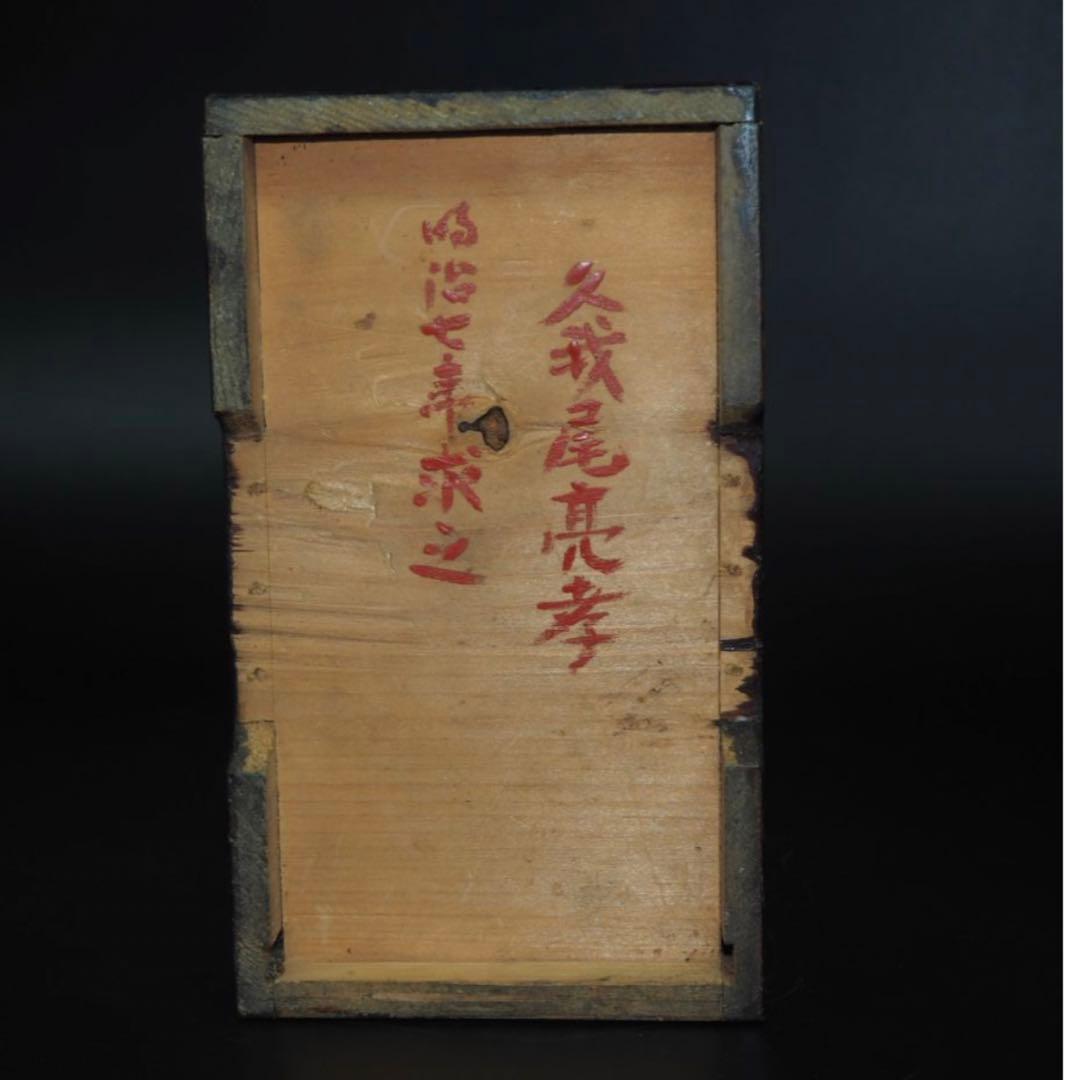 久我尾亮孝
明治七年求之